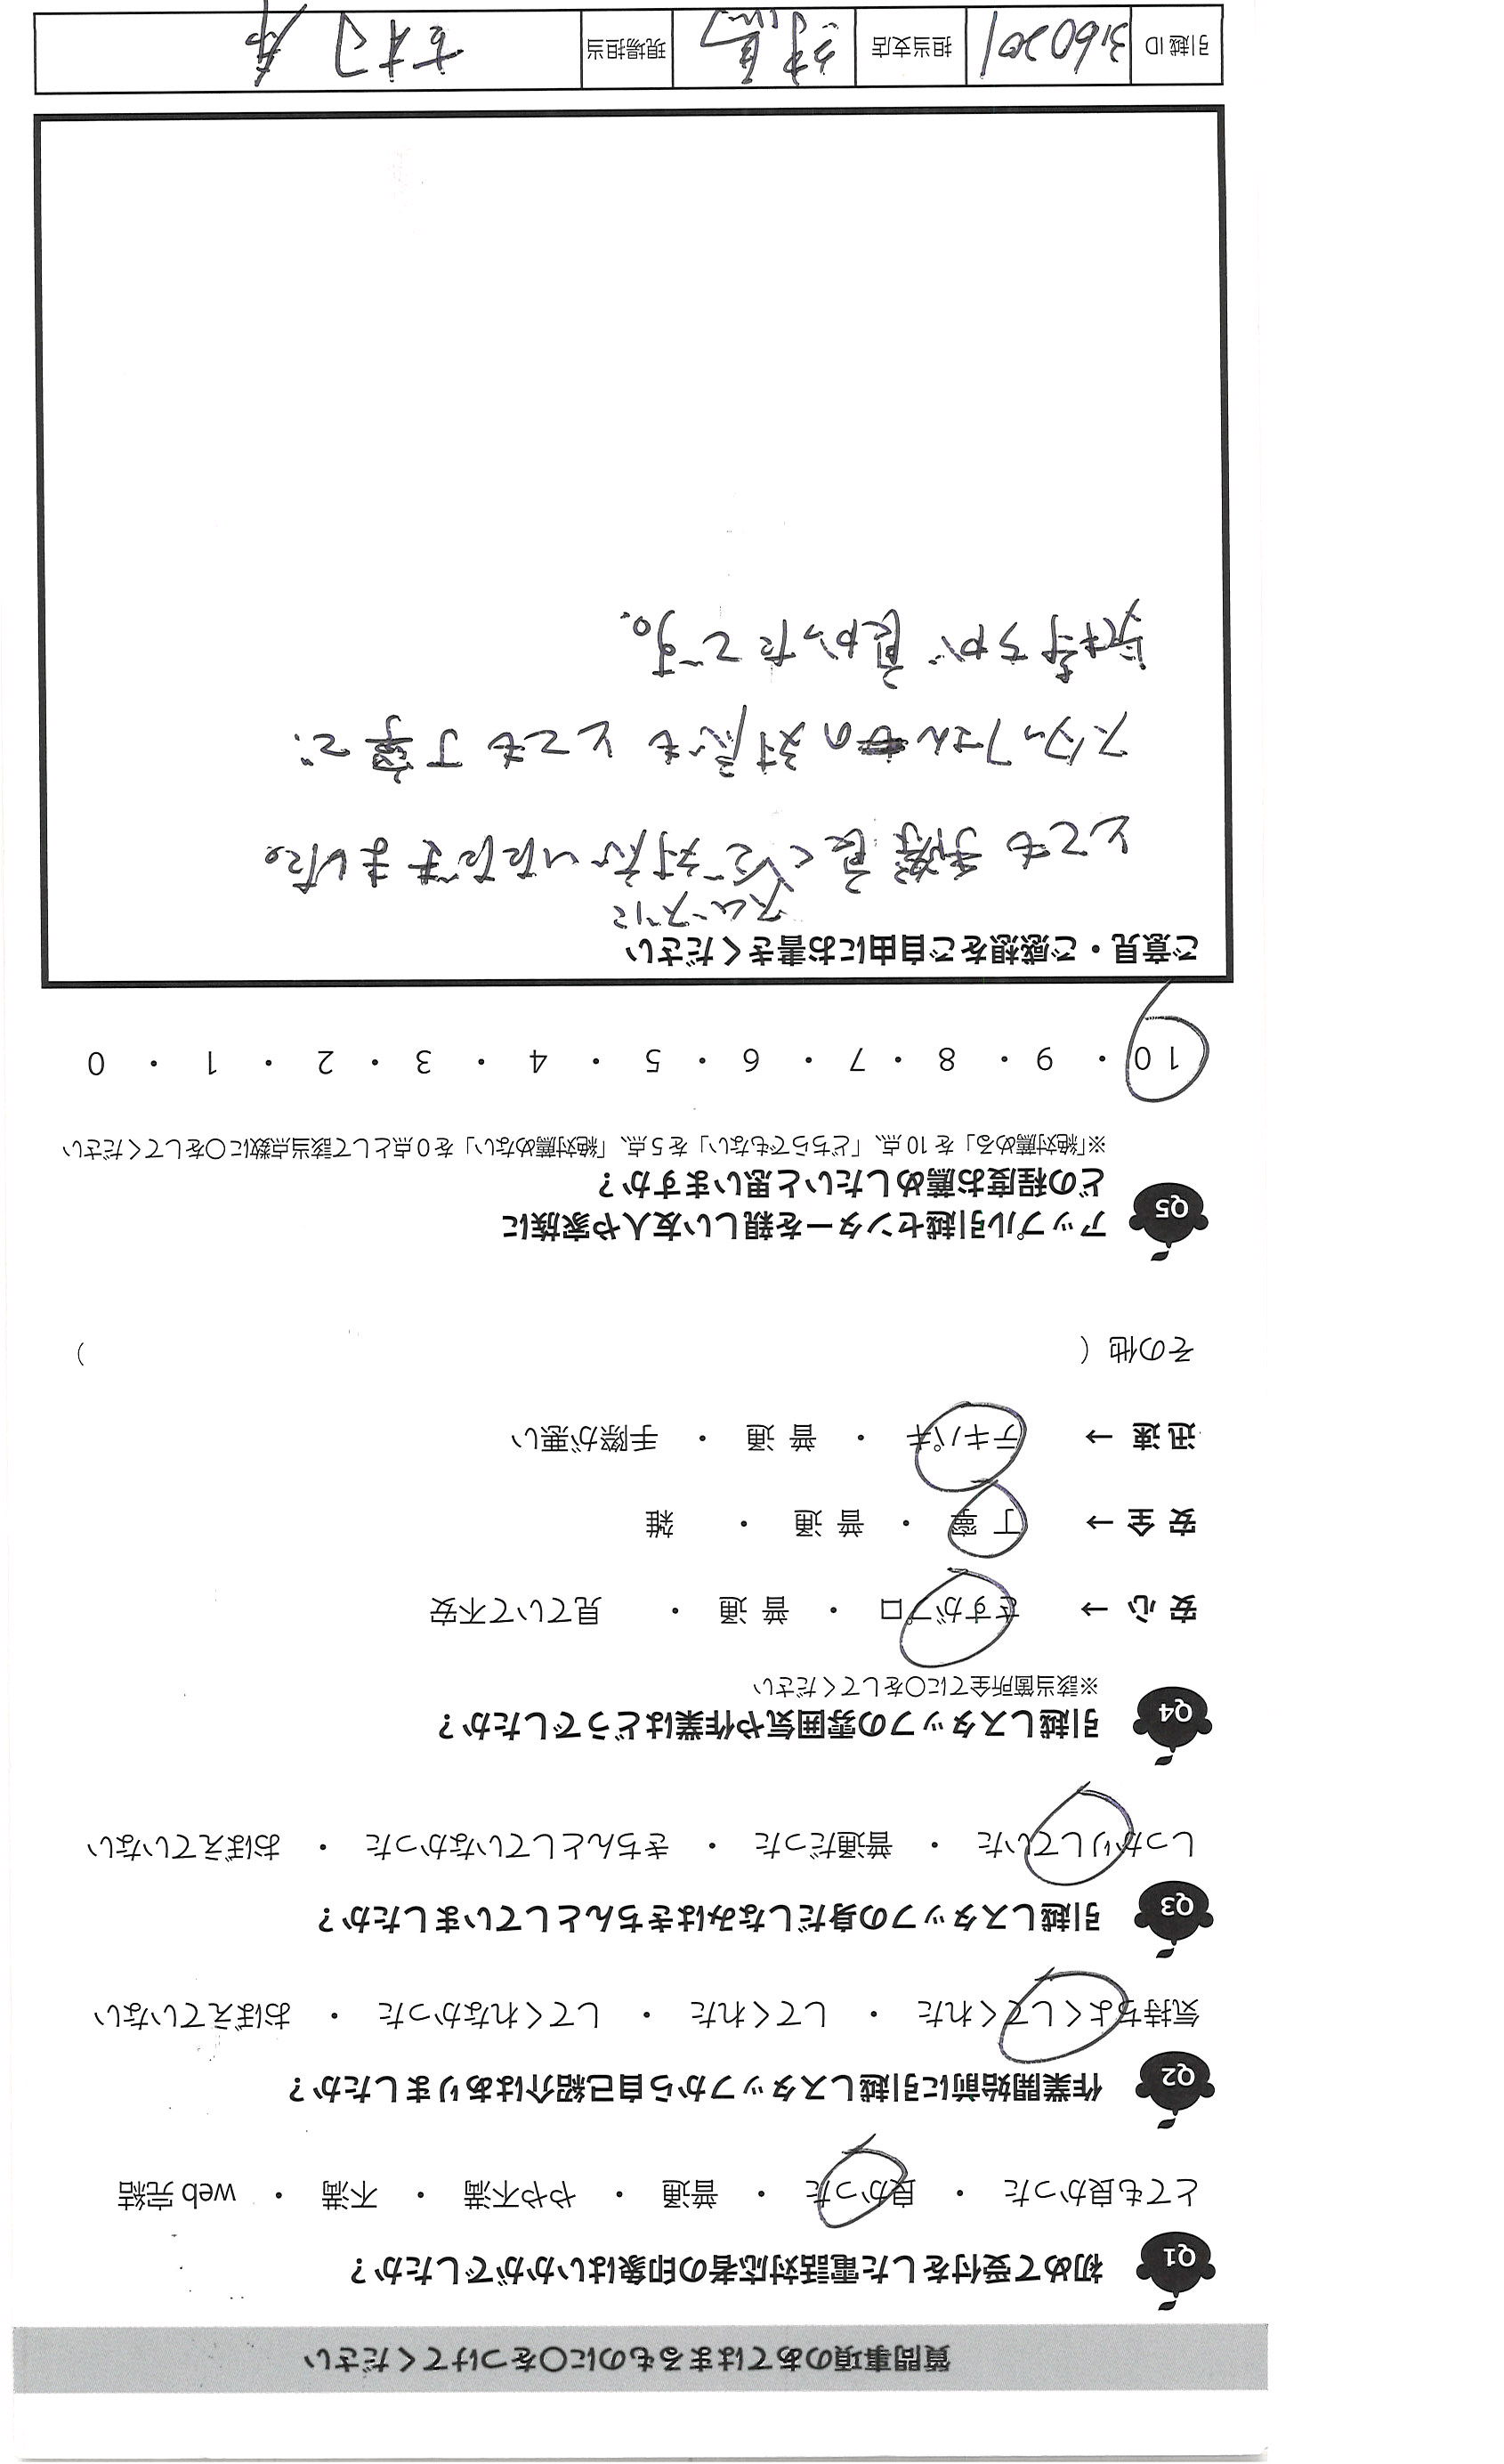 質問事項のあてはまるものに○をつけてください
Q1 初めて受付をした電話対応者の印象はいかがでしたか？
とても良かった ・ 良かった ・ 普通 ・ やや不満 ・ 不満 ・ web 完結
Q2 作業開始前に引越しスタッフから自己紹介はありましたか？
気持ちよくしてくれた ・ してくれた ・ してくれなかった ・ おぼえていない
Q3 引越しスタッフの身だしなみはきちんとしていましたか？
しっかりしていた ・ 普通だった ・ きちんとしていなかった ・ おぼえていない
Q4 引越しスタッフの雰囲気や作業はどうでしたか？
※該当箇所全てに○をしてください
安 心 → さすがプロ ・ 普 通 ・ 見ていて不安
安 全 → 丁 寧 ・ 普 通 ・ 雑
迅 速 → テキパキ ・ 普 通 ・ 手際が悪い
その他（ ）
Q5 アップル引越センターを親しい友人や家族に
どの程度お薦めしたいと思いますか？
※「絶対薦める」を 10 点、「どちらでもない」を 5 点、「絶対薦めない」を 0 点として該当点数に○をしてください
10 ・ 9 ・ 8 ・ 7 ・ 6 ・ 5 ・ 4 ・ 3 ・ 2 ・ 1 ・ 0
ご意見・ご感想をご自由にお書きください
スムーズに
とても手際良くご対応いただきました。
スタッフさんの対応もとても丁寧で
気持ちが良かったです。
引越 ID 3160201 担当支店 練馬 現場担当